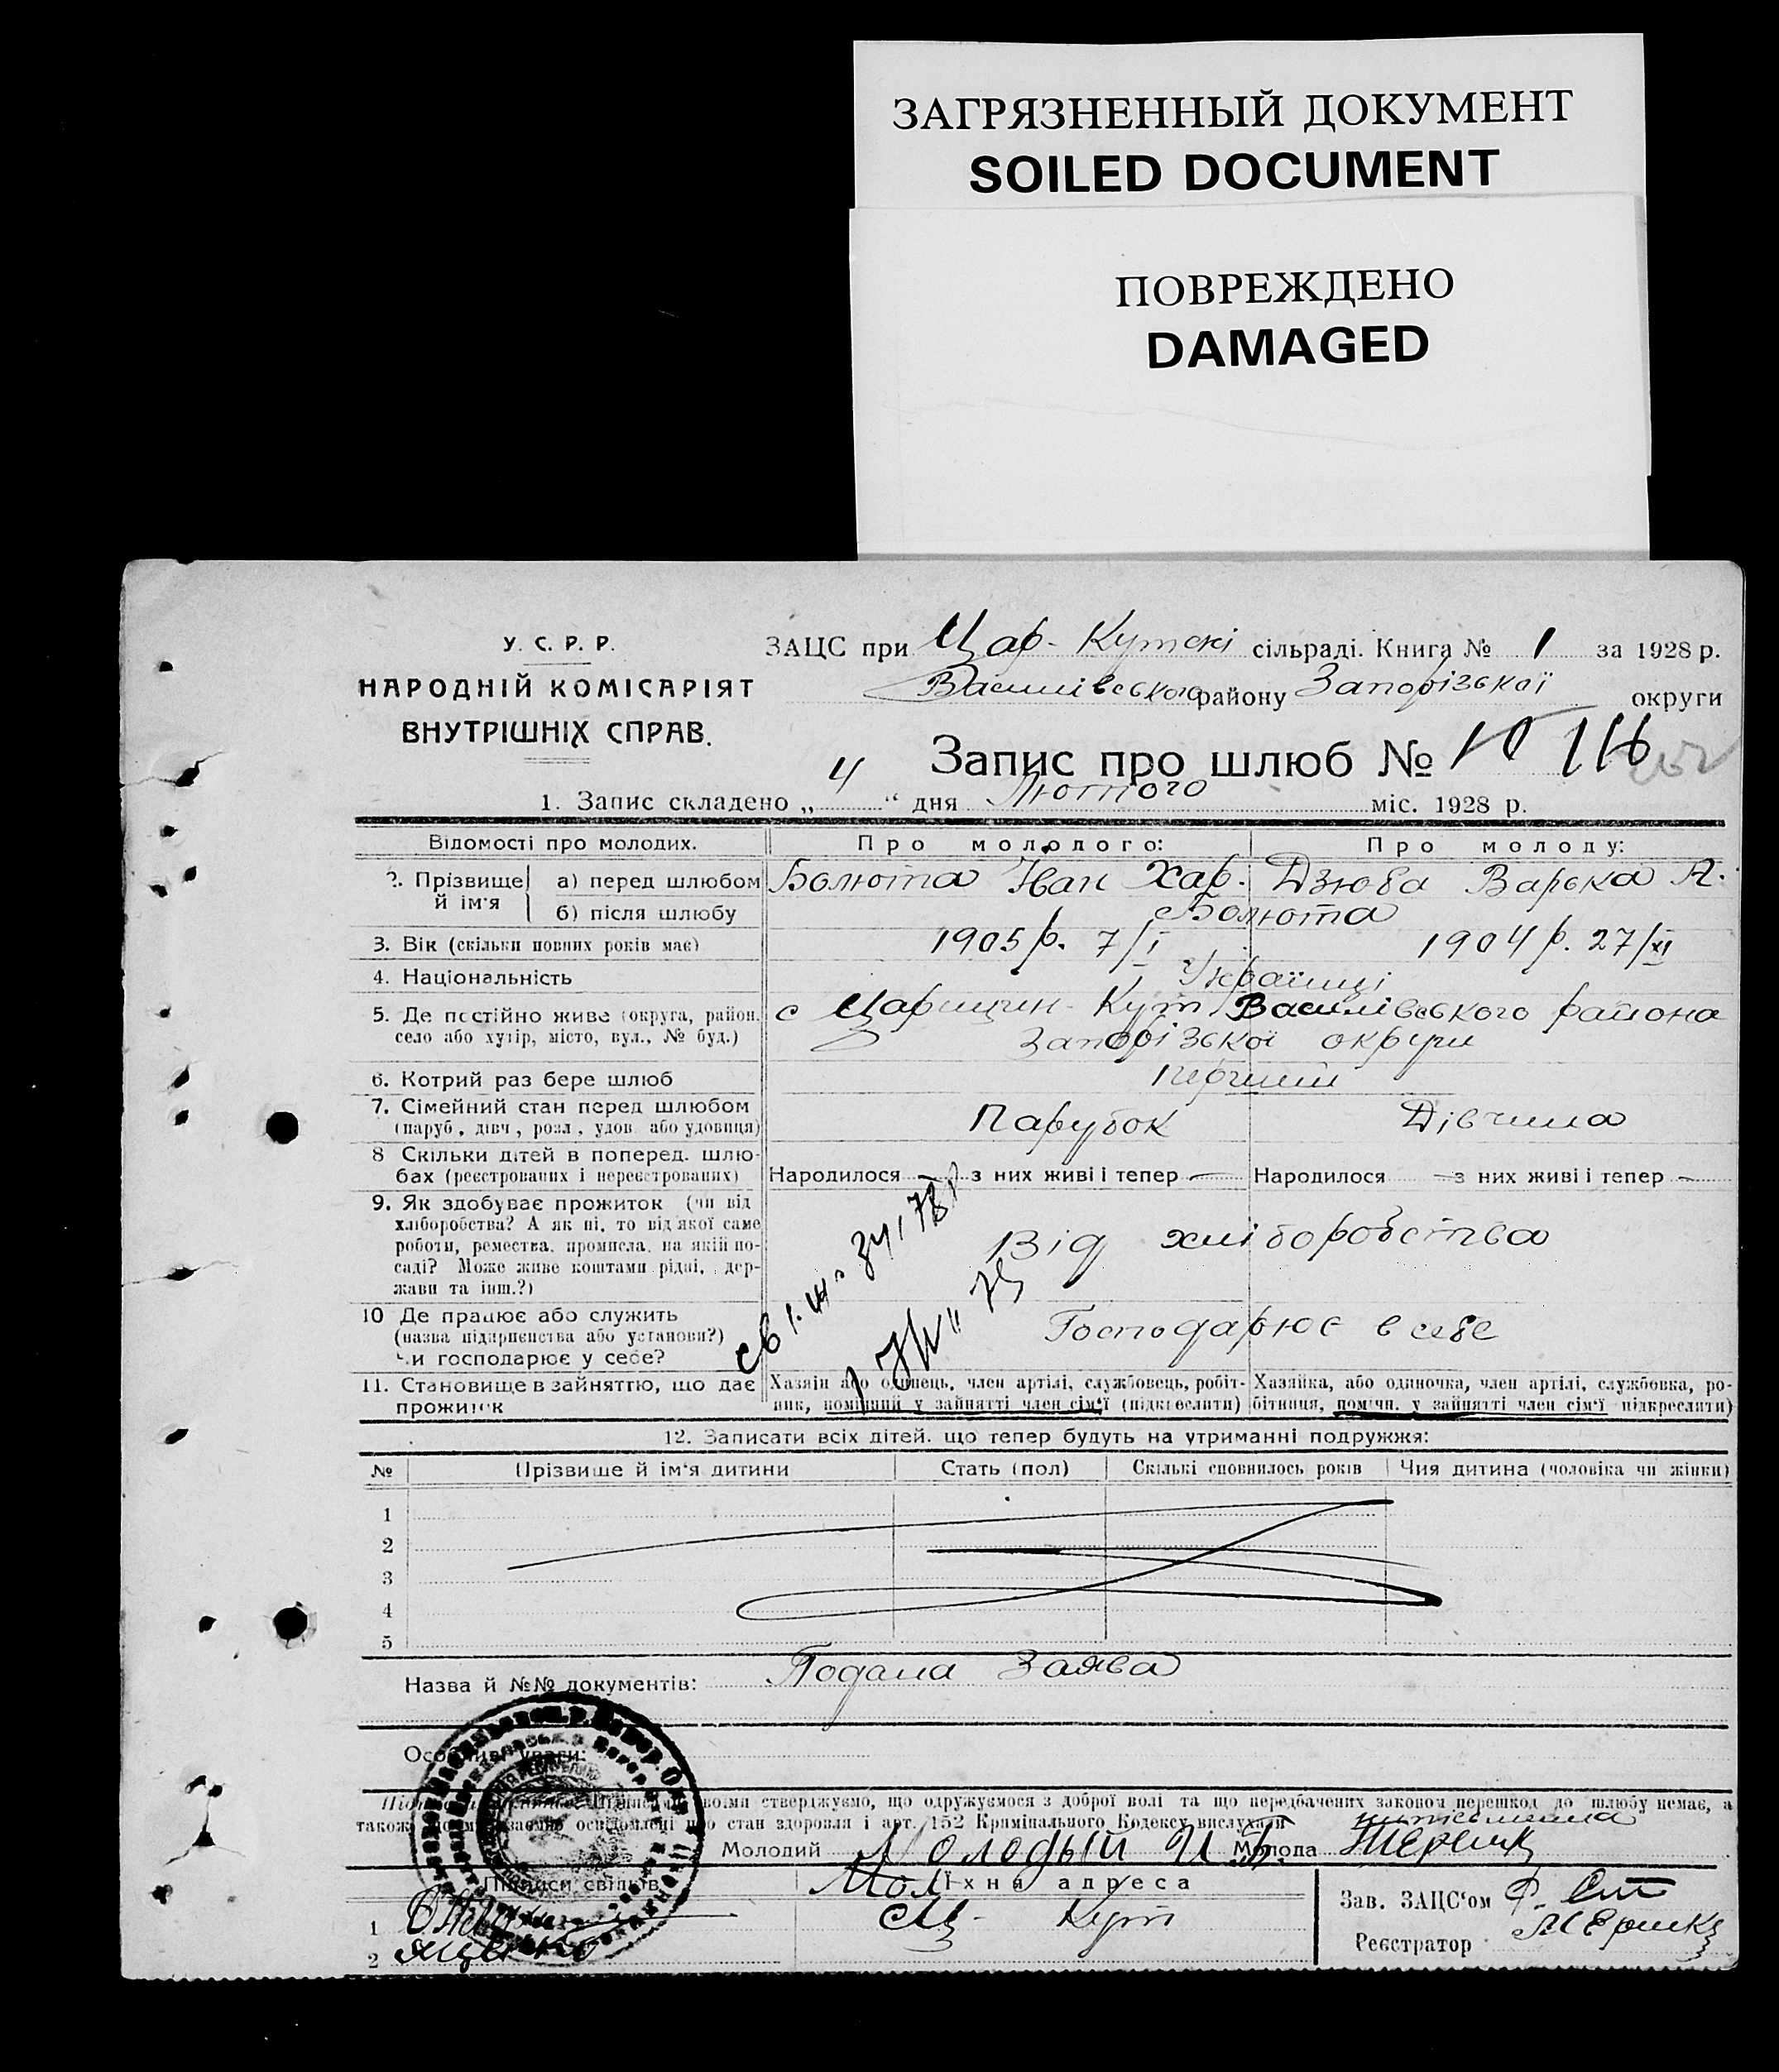 ЗАГРЯЗНЕННЫЙ ДОКУМЕНТ
SOILED DOCUMENT
ПОВРЕЖДЕНО
DAMAGED
У. С. Р. Р.
НАРОДНІЙ КОМІСАРІЯТ
ВНУТРІШНІХ СПРАВ.
ЗАЦС при Цар-Кутскі сільраді. Книга № 1 за 1928 р.
Василівського району Запорізької округи
Запис про шлюб № 10 116
1. Запис складено „ 4 “ дня Лютого міс. 1928 р.
Відомості про молодих. Про молодого: Про молоду:
2. Прізвище й ім'я
а) перед шлюбом Болюта Іван Хар. Дзюба Варька А.
б) після шлюбу Болюта
3. Вік (скільки повних років має) 1905 р. 7/I 1904 р. 27/XI
4. Національність Українці
5. Де постійно живе (округа, район, село або хутір, місто, вул., № буд.) с Царицин-Кут Василівського района
Запорізької округи
6. Котрий раз бере шлюб Перший
7. Сімейний стан перед шлюбом Парубок Дівчина
(паруб., дівч., розл., удов. або удовиця)
8 Скільки дітей в поперед. шлюбах (реєстрованих і нереєстрованих) Народилося — з них живі і тепер — Народилося — з них живі і тепер —
9. Як здобуває прожиток (чи від
хліборобства? А як ні, то від якої саме
роботи, ремества, промисла, на якій по-
саді? Може живе коштами рідні, дер-
жави та інш.?)
Від хліборобства
10 Де працює або служить
(назва підприємства або установи?)
Чи господарює у себе?
Господарює в себе
11. Становище в зайняттю, що дає прожиток
Хазяїн або одинець, член артілі, службовець, робіт-
ник, помічний у зайнятті член сім'ї (підкреслити)
Хазяйка, або одиночка, член артілі, службовка, ро-
бітниця, помічн. у зайнятті член сім'ї підкреслити)
12. Записати всіх дітей, що тепер будуть на утриманні подружжя:
№ Прізвище й ім'я дитини Стать (пол) Скількі сповнилось років Чия дитина (чоловіка чи жінки)
1
2
3
4
5
Назва й №№ документів: Подана Заява
Особливі уваги:
своїми стверджуємо, що одружуємося з доброї волі та що передбачених законом перешкод до шлюбу немає, а
також стан здоровля і арт. 152 Кримінального Кодексу вислухали
Молодий Молодый И Б. Молода
Підписи свідків Їхня адреса
Зав. ЗАЦС'ом
1 Ц-Кут
2 Яценко
Реєстратор